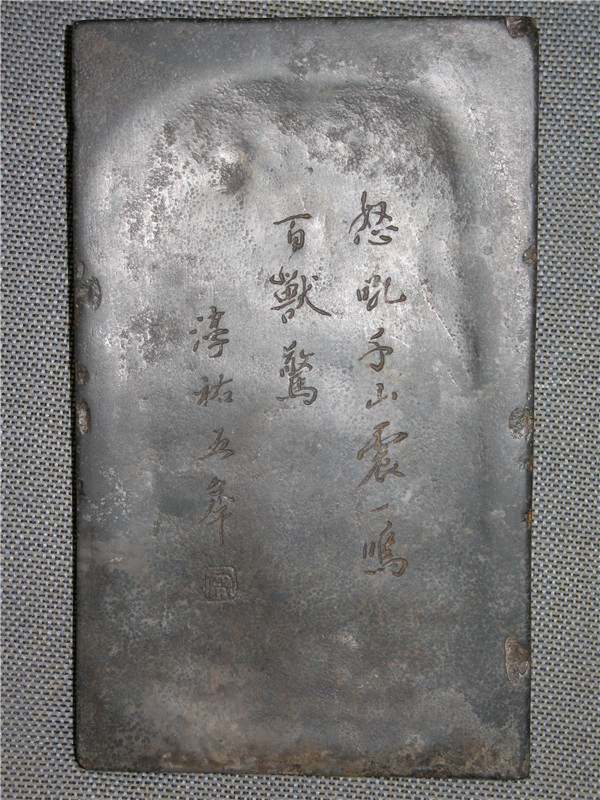 怒吼千山震一鳴
百獸驚
淳祐五年